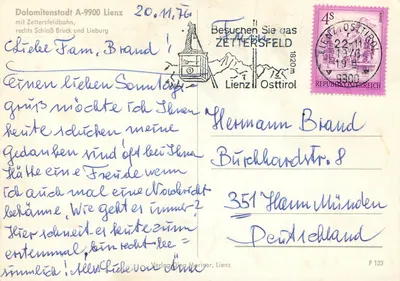 Dolomitenstadt A-9900 Lienz
mit Zettersfeldbahn,
rechts Schloß Bruck und Lieburg
20.11.76
Liebe Fam. Brand!
Einen lieben Sonntags
gruß möchte ich Ihnen
heute schicken meine
Gedanken sind oft bei Ihnen
Hätte eine Freude wenn
ich auch mal eine Nachricht
bekäme. Wie geht es immer?
Hier schneit es heute zum
erstenmal, bin recht be=
sinnlich! Alles Liebe von
Besuchen Sie das
ZETTERSFELD
1820m
Lienz Osttirol
LIENZ, OSTTIROL
22-11
9900
4S
REPUBLIK ÖSTERREICH
Hermann Brand
Burckhardtstr. 8
351 Hann Münden
Deutschland
Lienz
F 123